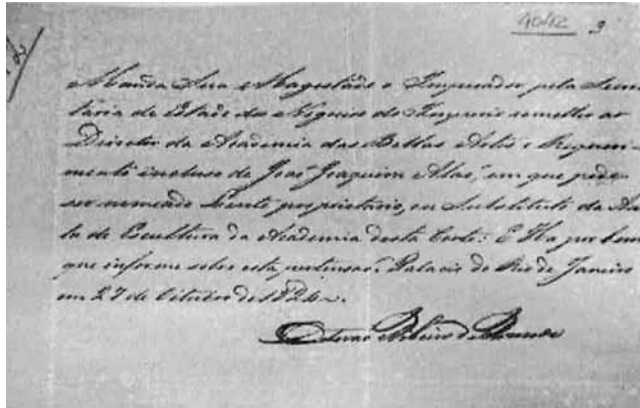 4042 9
Manda Sua Magestade o Imperador pela Secre
taria de Estado dos Negocios do Imperio remetter ao
Director da Academia das Bellas Artes o Requeri-
mento incluso de João Joaquim Alão, em que pede
ser nomeado Lente proprietario, ou Substituto da Au
la de Escultura da Academia desta Corte: E Ha por bem
que informe sobre esta pertensão. Palacio do Rio de Janeiro
em 27 de Outubro de 1824.
Estevão Ribeiro de Rezende